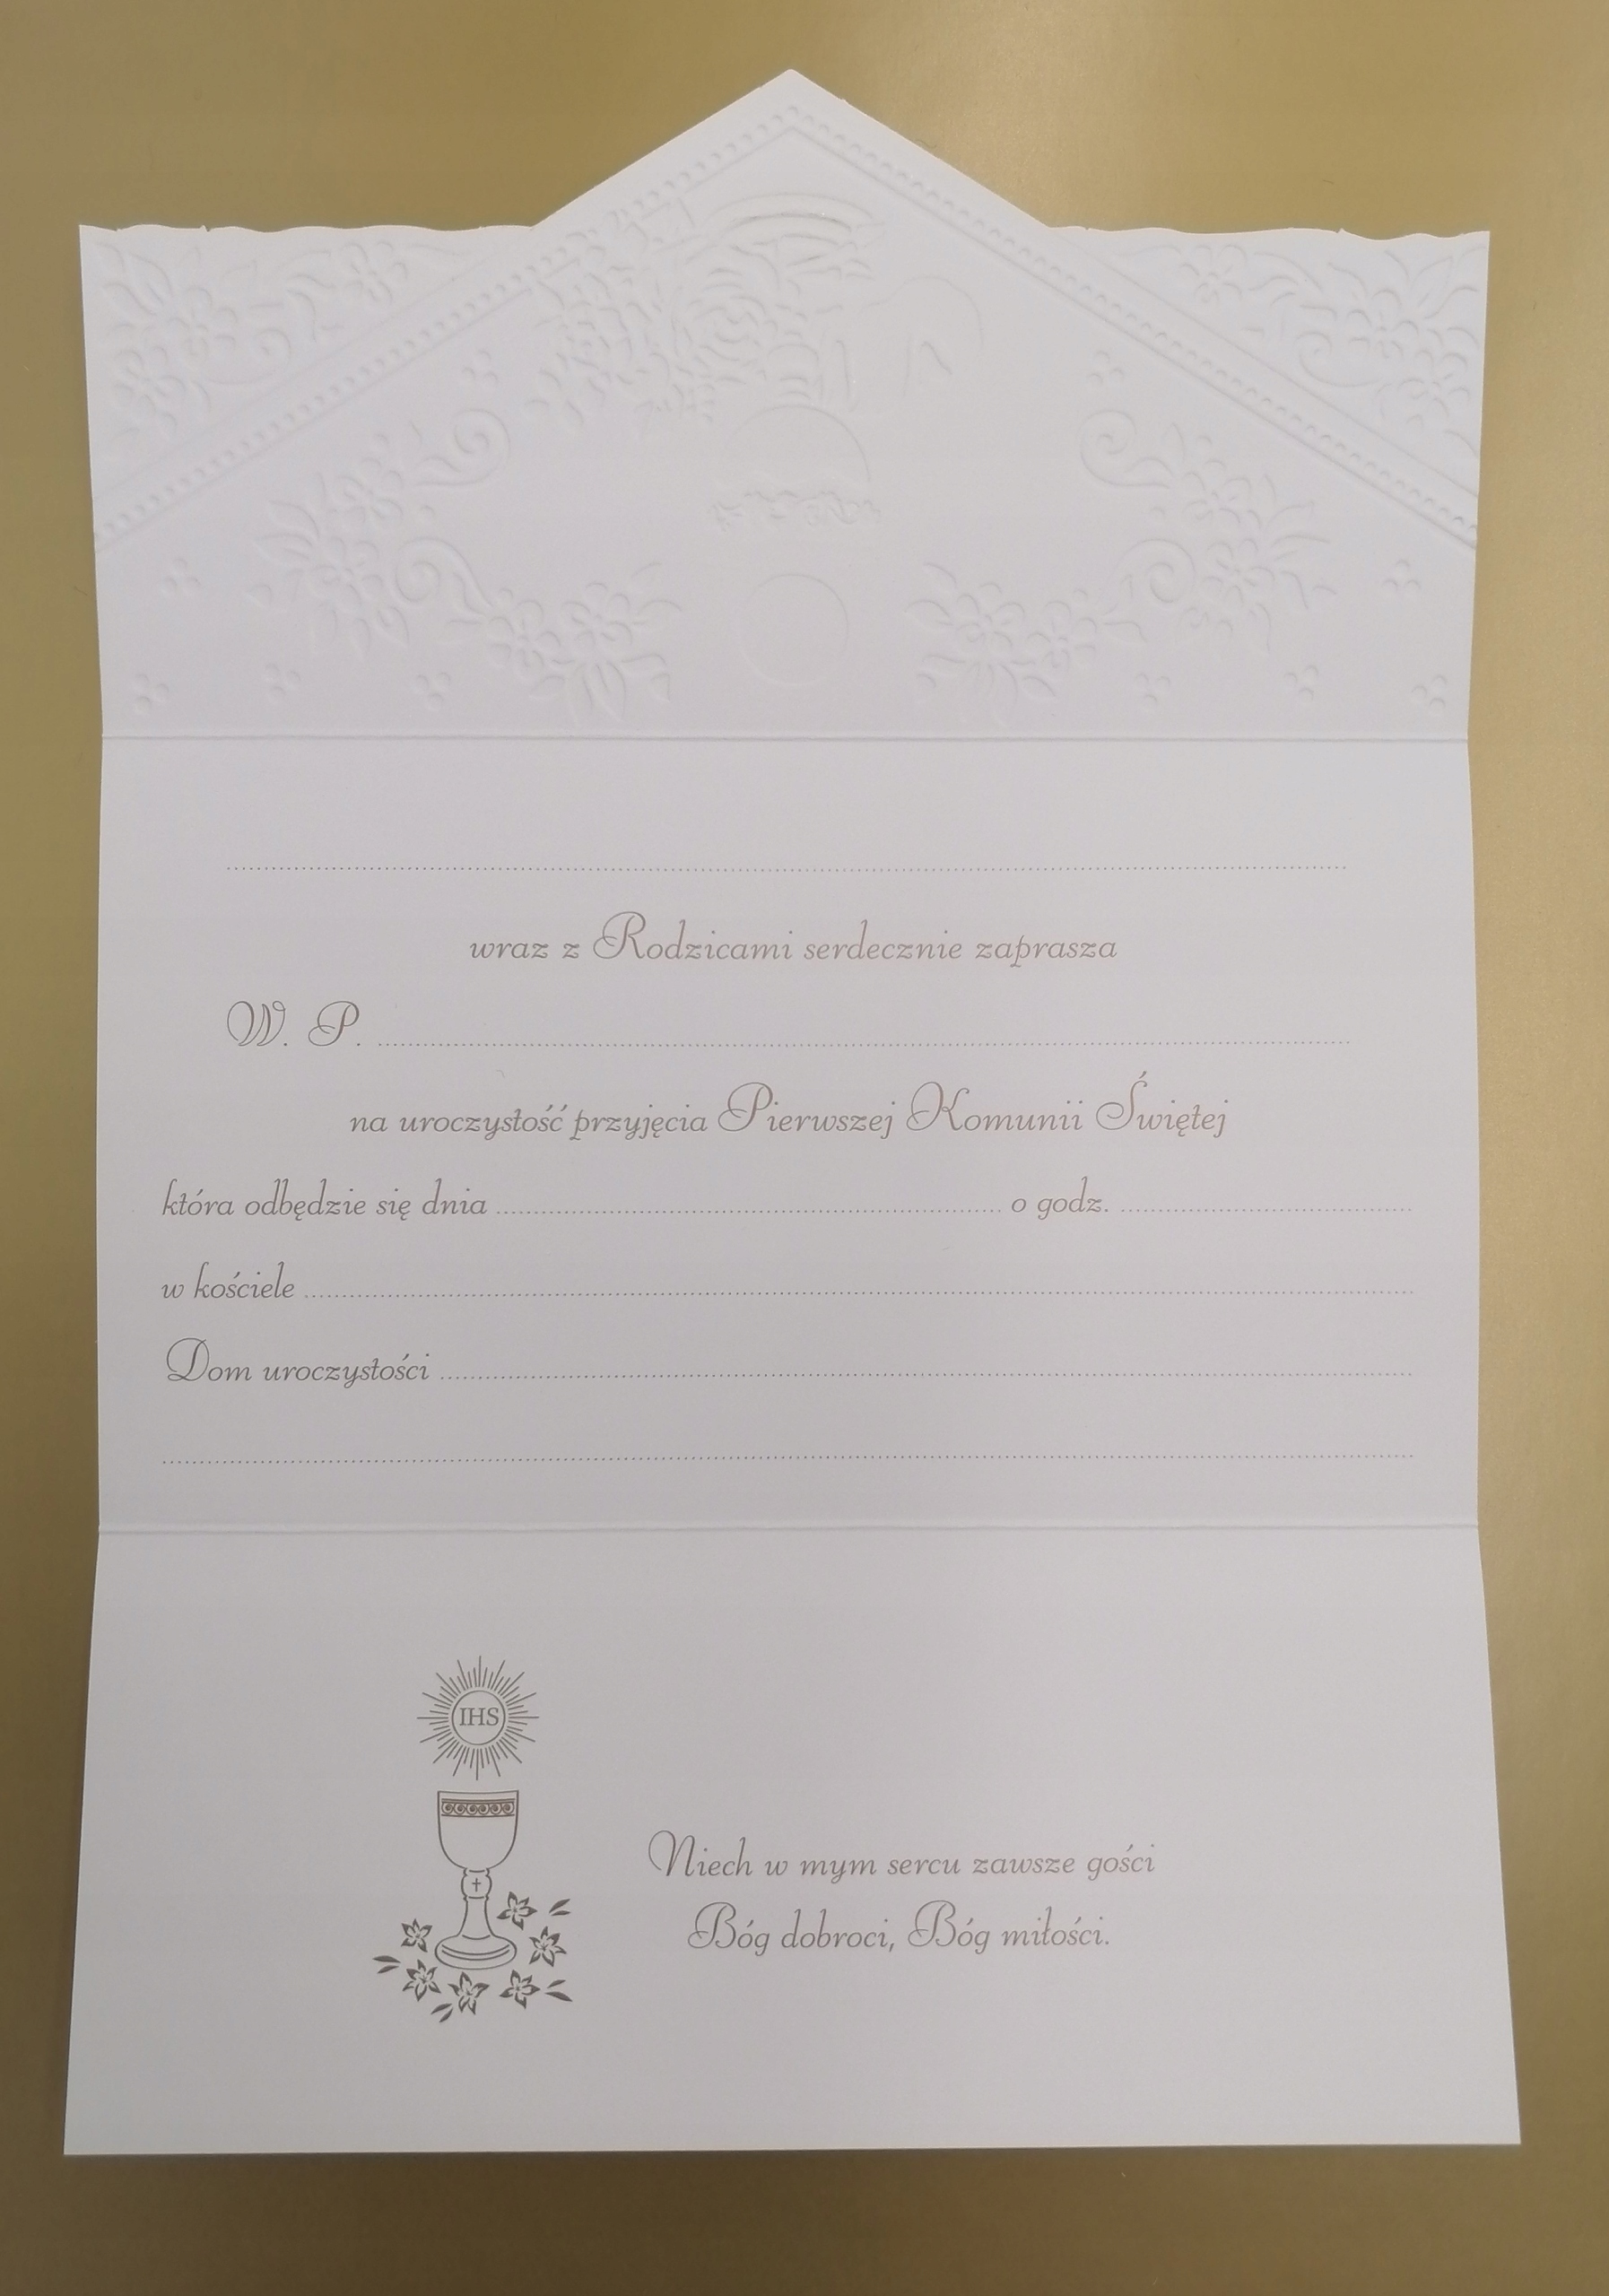 wraz z Rodzicami serdecznie zaprasza
W. P. ........................................
na uroczystość przyjęcia Pierwszej Komunii Świętej
która odbędzie się dnia .............................. o godz. ....................
w kościele ........................................
Dom uroczystości ........................................
IHS
Niech w mym sercu zawsze gości
Bóg dobroci, Bóg miłości.